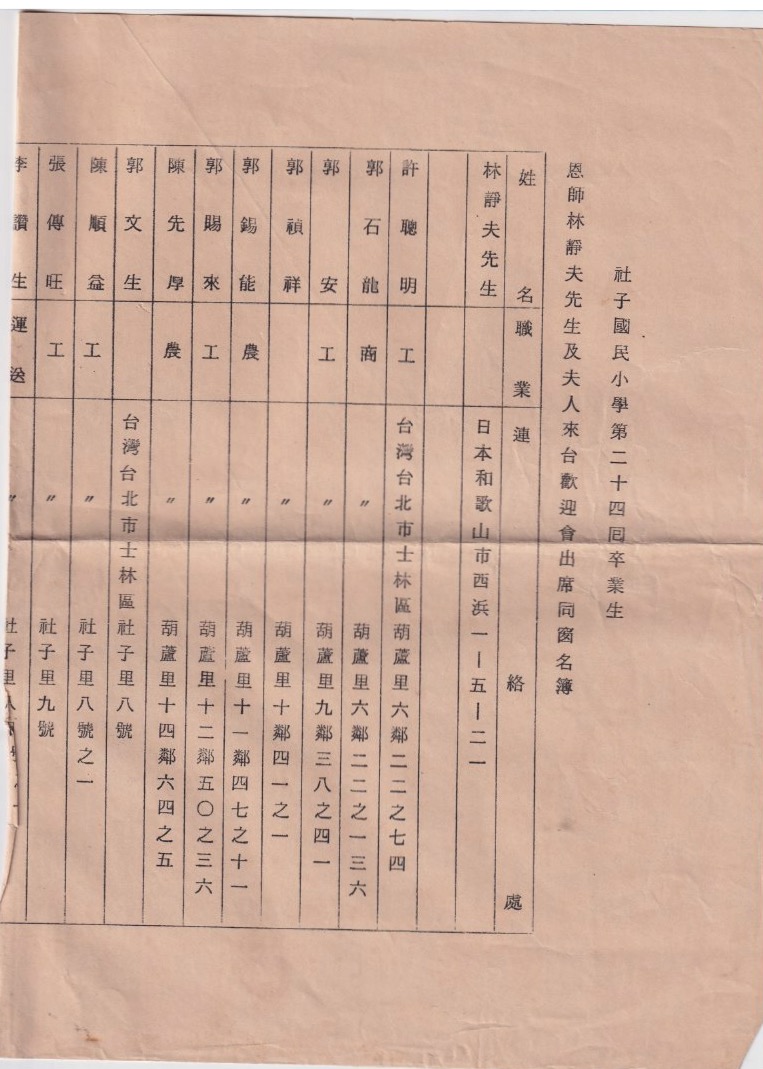 社子國民小學第二十四囘卒業生
恩師林靜夫先生及夫人來台歡迎會出席同窗名簿
姓名 職業 連絡處
林靜夫先生 日本和歌山市西浜一－五－二一
許聰明 工 台灣台北市士林區 葫蘆里六鄰二二之七四
郭石龍 商 〃 葫蘆里六鄰二二之一三六
郭安 工 〃 葫蘆里九鄰三八之四一
郭禎祥 〃 葫蘆里十鄰四一之一
郭錫能 農 〃 葫蘆里十一鄰四七之十一
郭賜來 工 〃 葫蘆里十二鄰五〇之三六
陳先厚 農 〃 葫蘆里十四鄰六四之五
郭文生 台灣台北市士林區 社子里八號
陳順益 工 〃 社子里八號之一
張傳旺 工 〃 社子里九號
李讚生 運送 〃 社子里